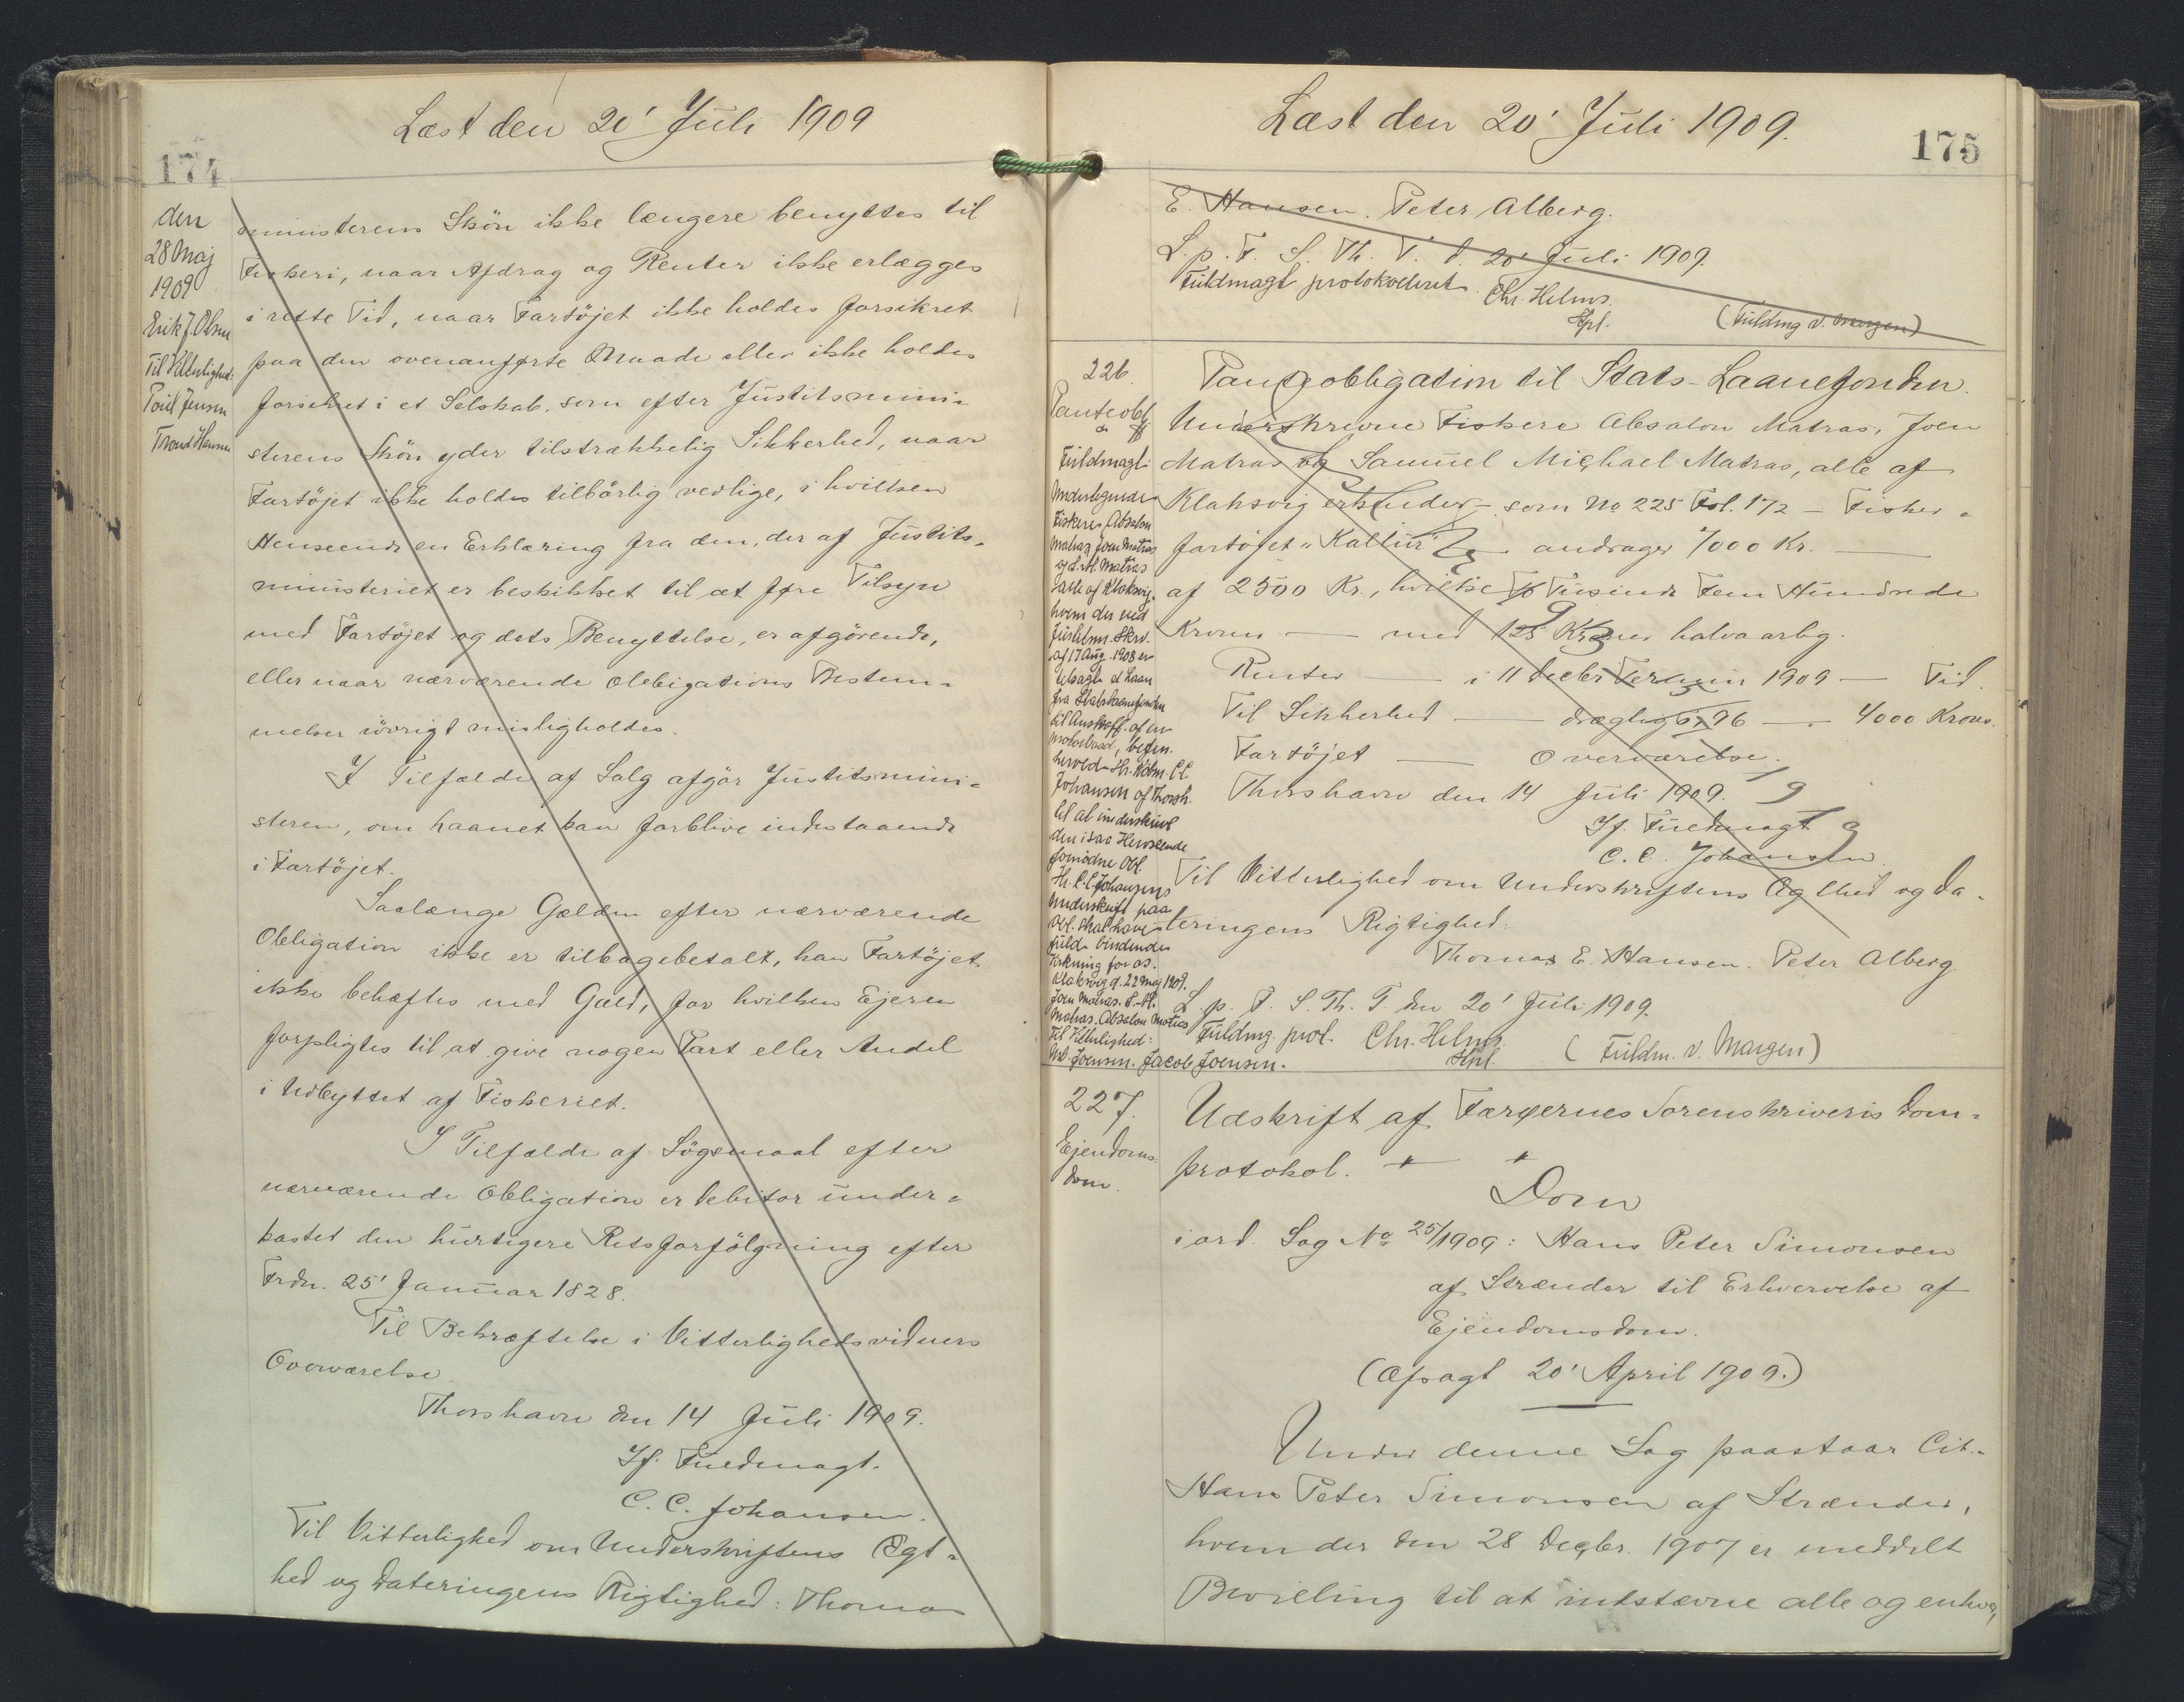 Læst den 20' Juli 1909
174
den
28 Maj
1909
Erik J. Olsen
Til Vitterlighed:
Poul Jensen
Trond Hansen
ministerens Skön ikke længere benyttes til
Fiskeri, naar Afdrag og Renter ikke erlægges
i rette Tid, naar Fartöjet ikke holdes forsikret
paa den ovenanførte Maade eller ikke holdes
forsikret i et Selskab, som efter Justitsmini-
sterens Skön yder tilstrækkelig Sikkerhed, naar
Fartöjet ikke holdes tilbörlig vedlige, i hvilken
Henseende en Erklæring fra den, der af Justits-
ministeriet er beskikket til at føre Tilsyn
med Fartöjet og dets Benyttelse, er afgörende,
eller naar nærværende Obligations Bestem-
melser iövrigt misligholdes.
I Tilfælde af Salg afgör Justitsmini-
steren, om Laanet kan forblive indestaaende
i Fartöjet.
Saalænge Gælden efter nærværende
Obligation ikke er tilbagebetalt, kan Fartöjet
ikke behæftes med Gæld, for hvilken Ejeren
forpligtes til at give nogen Part eller Andel
i Udbyttet af Fiskeriet.
I Tilfælde af Sögsmaal efter
nærværende Obligation er Debitor under-
kastet den hurtigere Retsforfölgning efter
Frdn. 25' Januar 1828.
Til Bekræftelse i Vitterlighedsvidners
Overværelse.
Thorshavn den 14 Juli 1909.
If. Fuldmagt.
C. C. Johansen.
Til Vitterlighed om Underskriftens Ægt-
hed og Dateringens Rigtighed: Thomas
Læst den 20' Juli 1909.
175
E. Hansen. Peter Alberg.
L. p. F. S. Th. T. d. 20' Juli 1909.
Fuldmagt protokolleret. Chr. Helms.
Spl.
(Fuldmg v. Margen)
226.
Panteobl.
Fuldmagt:
Undertegnede
Fiskere Absalon
Matras, Joen Matras
og S. M. Matras
alle af Klaksvig,
hvem der ved
Justmn. Skrv.
af 17 Aug. 1908 er
tilsagt et Laan
fra Statslaanefonden
til Anskaff. af en
motorbaad, befm.
herved Hr. Købm. C.C.
Johansen af Thorsh.
til at underskrive
den i saa Henseende
fornödne Obl.
Hr. C.C. Johansens
Underskrift paa
Obl. skal have
fuld bindende
Virkning for os.
Klaksvig d. 22 Maj 1909.
Joen Matras. S. M.
Matras. Absalon Matras
Til Vitterlighed:
Joensen. Jacob Joensen.
Panteobligation til Stats-Laanefonden.
Underskrevne Fiskere Absalon Matras, Joen
Matras og Samuel Michael Matras, alle af
Klaksvig erkender - som No 225 Fol. 172 - Fisker-
fartöjet "Kallur" andrager 7000 Kr.
af 2500 Kr., hvilke To Tusinde Fem Hundrede
Kroner — med 125 Kroner halvaarlig.
Renter — i 11 Decbr Termin 1909 — Tid.
Til Sikkerhed — drægtig 6,96 — 4000 Kroner.
Fartöjet — Overværelse.
Thorshavn den 14 Juli 1909.
If. Fuldmagt
C. C. Johansen.
Til Vitterlighed om Underskriftens Ægthed og Da-
teringens Rigtighed:
Thomas E. Hansen. Peter Alberg
L. p. F. S. Th. T. den 20' Juli 1909.
Fuldmg. prot. Chr. Helms.
Spl.
(Fuldm. v. Margen)
227.
Ejendoms-
dom.
Udskrift af Færøernes Sorenskriveris Dom-
protokol.
Dom
i ord. Sag No 25/1909: Hans Peter Simonsen
af Strænder til Erhvervelse af
Ejendomsdom.
(Afsagt 20' April 1909.)
Under denne Sag paastaar Cit.
Hans Peter Simonsen af Strænder,
hvem der den 28 Decbr. 1907 er meddelt
Bevilling til at indstævne alle og enhver,